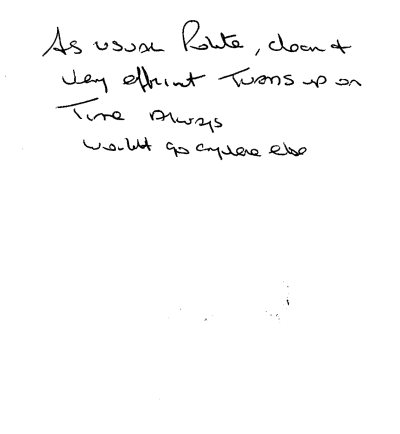 As usual Polite, clean +
very efficient Turns up on
Time Always
wouldn't go anywhere else